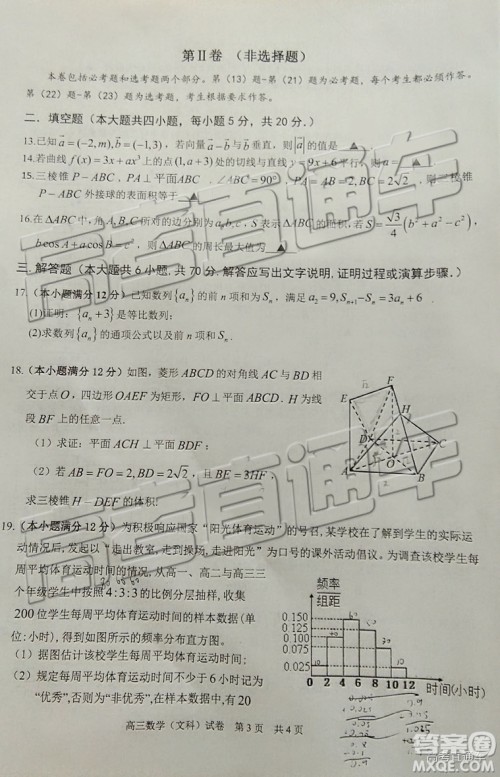 第Ⅱ卷 （非选择题）
本卷包括必考题和选考题两个部分。第（13）题-第（21）题为必考题，每个考生都必须作答。
第（22）题-第（23）题为选考题，考生根据要求作答。
二、填空题（本大题共四小题，每小题5分，共20分。）
13.已知a=(-2,m),b=(-1,3)，若向量a-b与b垂直，则|a|的值是 ▲
14.若曲线 f(x)=3x+ax³ 上的点(1,a+3)处的切线与直线y=9x+6平行，则a= ▲
15.三棱锥P-ABC中，∠ABC=90°，PA=AB=2,BC=2√2，则三棱锥
P-ABC外接球的表面积等于 ▲
16.在ΔABC中，角A,B,C所对的边分别为a,b,c，S表示ΔABC的面积，若S=√3/4(b²+a²-c²)，
bcosA+acosB=c，则ΔABC的周长最大值为 ▲
三.解答题（本大题共6小题,共70分.解答应写出文字说明,证明过程或演算步骤.）
17.（本小题满分12分）已知数列{aₙ}的前n项和为Sₙ，满足a₂=9,Sₙ₊₁-Sₙ=3aₙ+6
(1)证明：{aₙ+3}是等比数列；
(2)求数列{aₙ}的通项公式以及前n项和Sₙ.
18.（本小题满分12分）如图，菱形ABCD的对角线AC与BD相
交于点O，四边形OAEF为矩形，FO⊥平面ABCD.H为线
段BF上的任意一点.
（1）求证：平面ACH⊥平面BDF；
（2）若AB=FO=2,BD=2√2，且BE=3HF，
求三棱锥H-DEF的体积.
E
F
H
D
C
O
A
B
19.（本小题满分12分）为积极响应国家“阳光体育运动”的号召，某学校在了解到学生的实际运
动情况后，发起以“走出教室，走到操场，走进阳光”为口号的课外活动倡议。为调查该校学生每
周平均体育运动时间的情况，从高一、高二与高三三
个年级学生中按照4:3:3的比例分层抽样，收集
200位学生每周平均体育运动时间的样本数据(单
位:小时)，得到如图所示的频率分布直方图。
（1）据图估计该校学生每周平均体育运动时间；
（2）规定每周平均体育运动时间不少于6小时记为
“优秀”，否则为“非优秀”，在样本数据中，有20
频率
组距
0.150
0.125
0.100
0.075
0.025
0 2 4 6 8 10 12 时间(小时)
高三数学（文科）试卷 第3页 共4页
高考直通车
答案圈
MXQE.COM